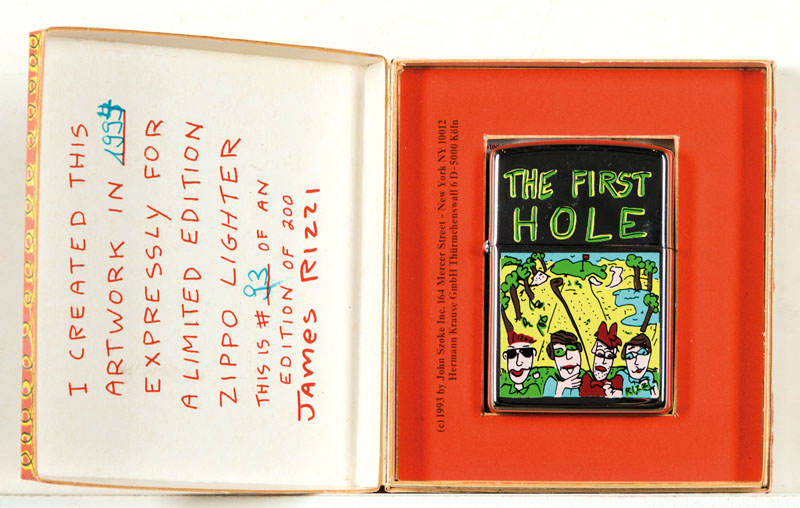 I CREATED THIS
ARTWORK IN 1994
EXPRESSLY FOR
A LIMITED EDITION
ZIPPO LIGHTER
THIS IS # 93 OF AN
EDITION OF 200
JAMES RIZZI
(c) 1993 by John Szoke Inc. 164 Mercer Street - New York NY 10012
Hermann Krause GmbH Thürmchenswall 6 D-5000 Köln
THE FIRST
HOLE
RIZZI